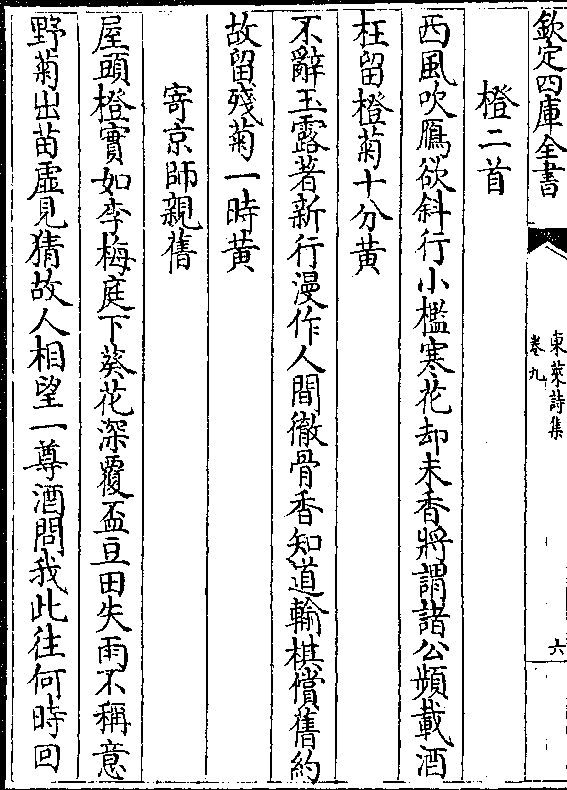 欽定四庫全書
東萊詩集
卷九
六
橙二首
西風吹鴈欲斜行小檻寒花却未香將謂諸公頻載酒
枉留橙菊十分黄
不辭玉露著新行漫作人間徹骨香知道輸棋償舊約
故留殘菊一時黄
寄京師親舊
屋頭橙實如李梅庭下葵花深覆盃豆田失雨不稱意
野菊出苗虛見猜故人相望一尊酒問我此往何時回